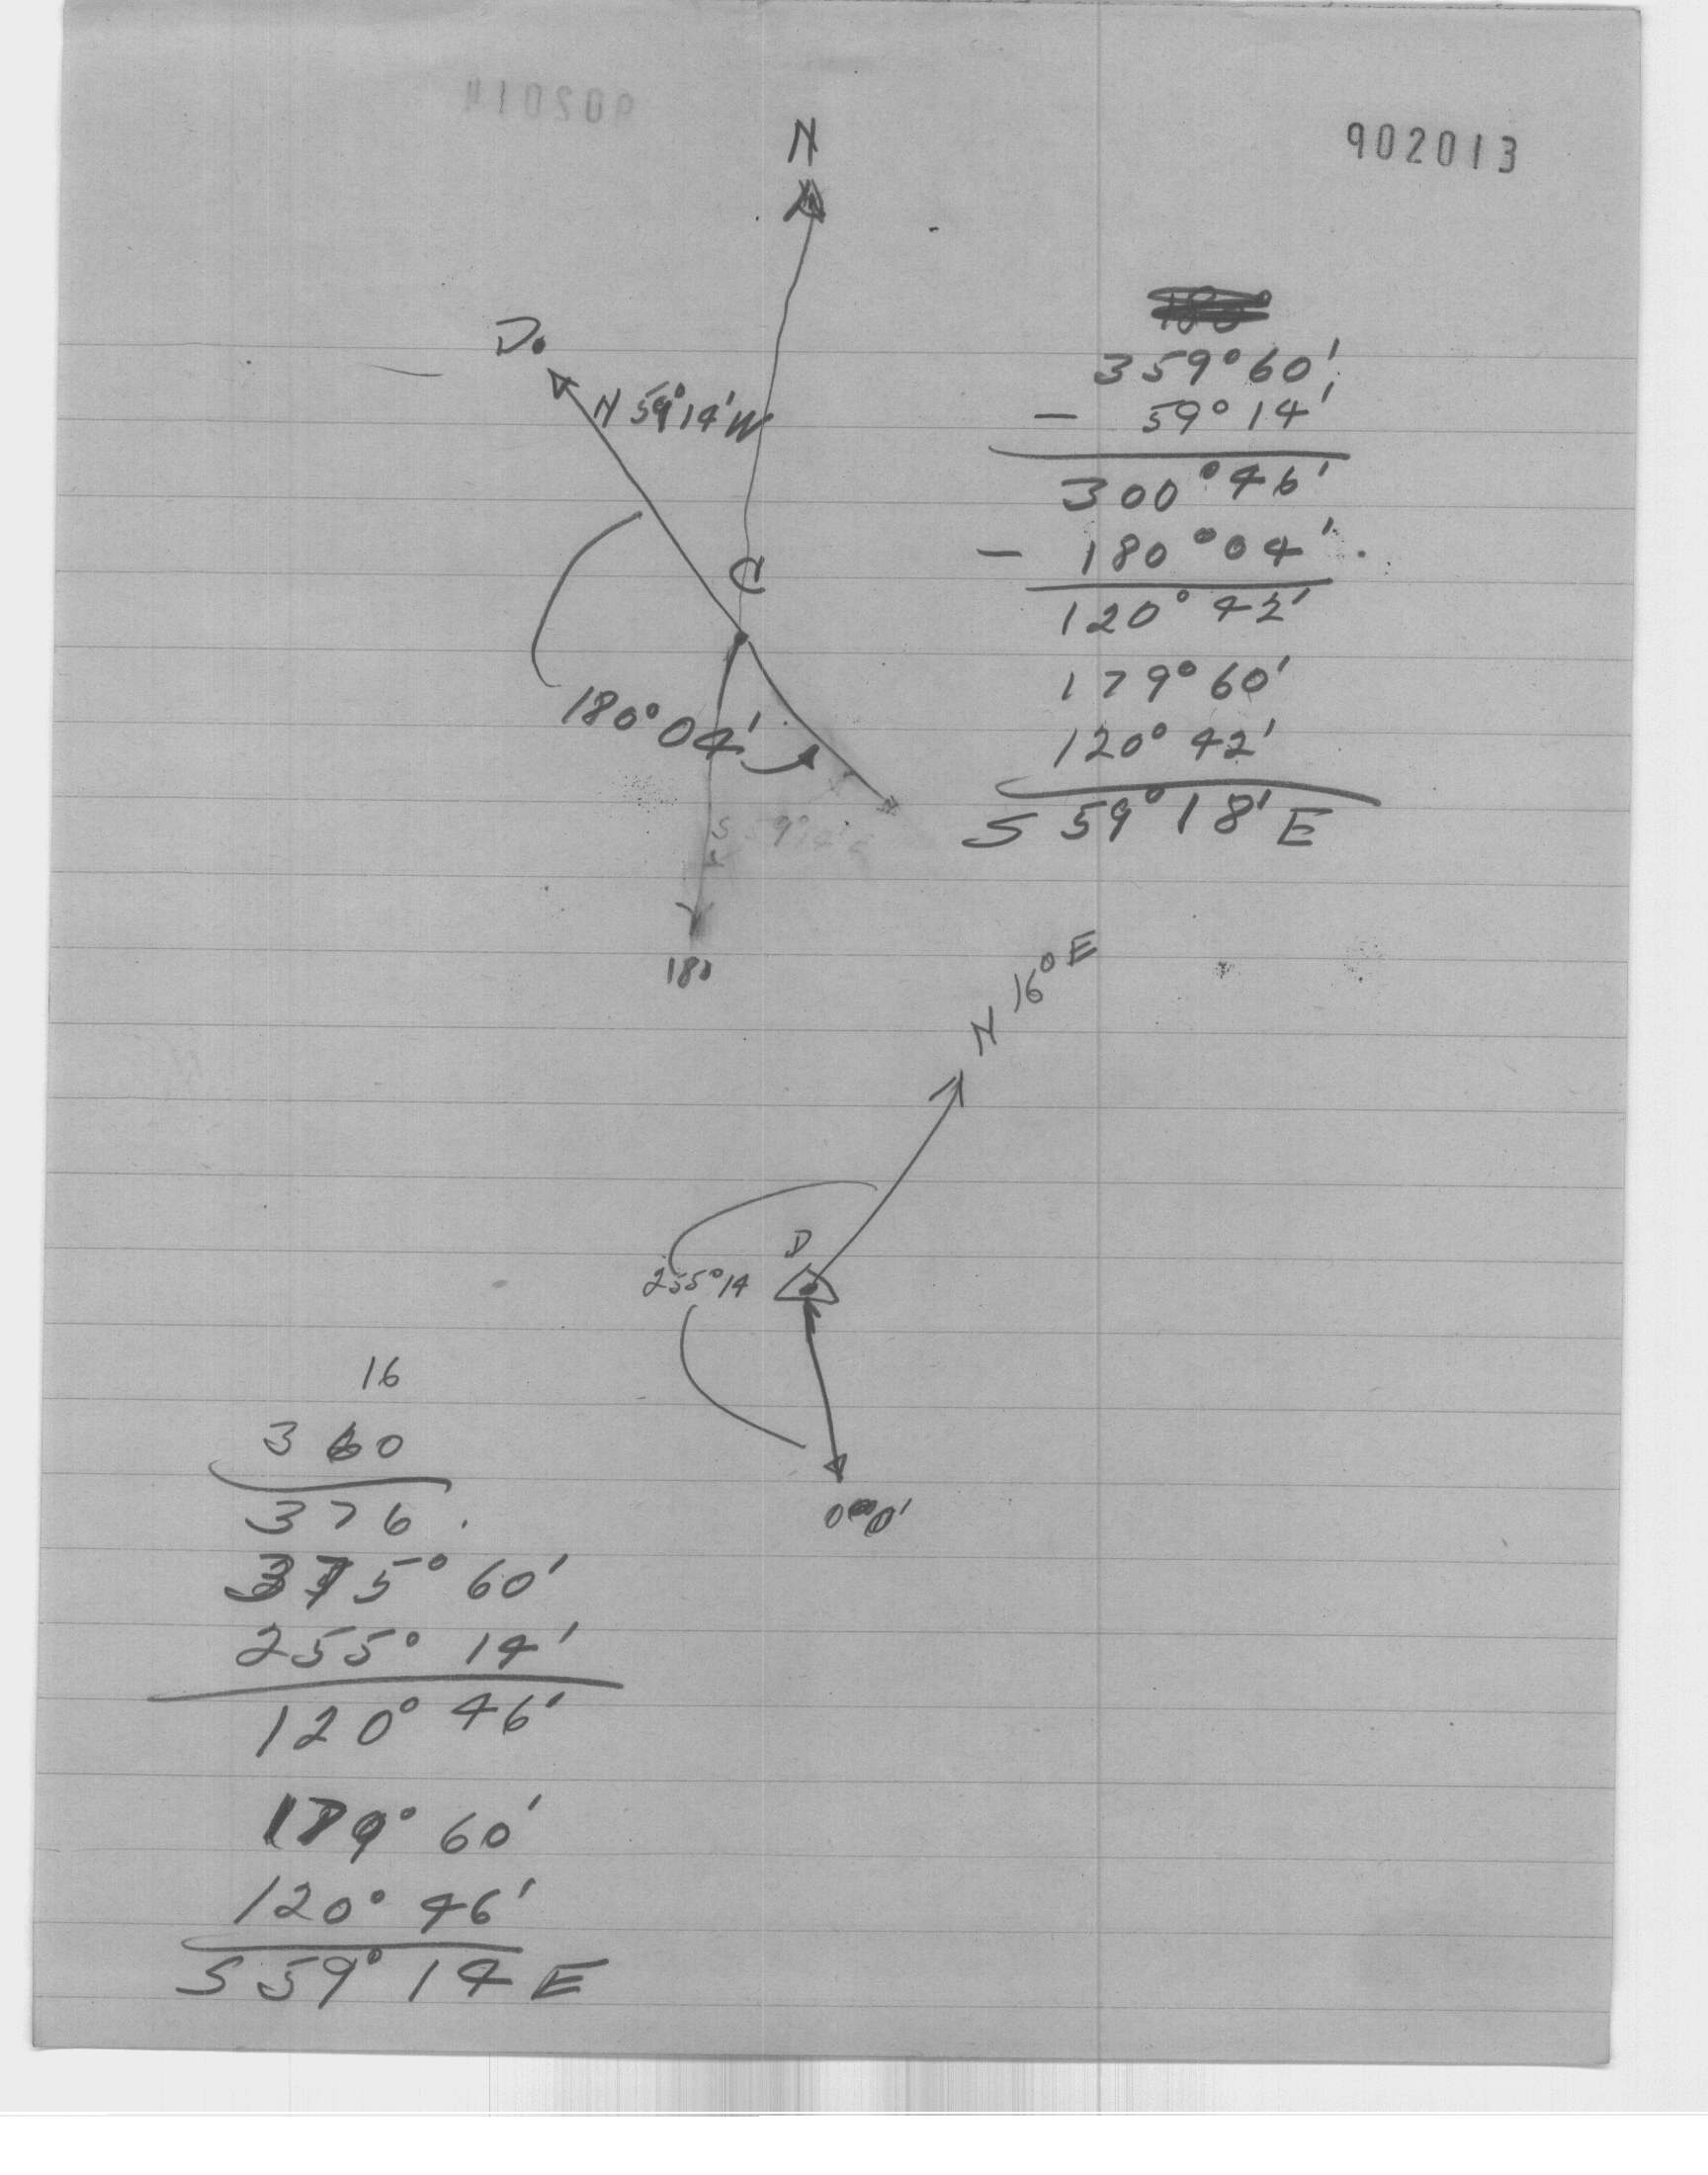 902014
902013
N
D.
N 59°14'W
C
180°04'
180
359°60'
- 59°14'
300°46'
- 180°04'.
120°42'
179°60'
120°42'
S 59°18'E
N 16° E
D
255°14
0°00'
16
360
376.
375°60'
255°14'
120°46'
179°60'
120°46'
S 59°14 E